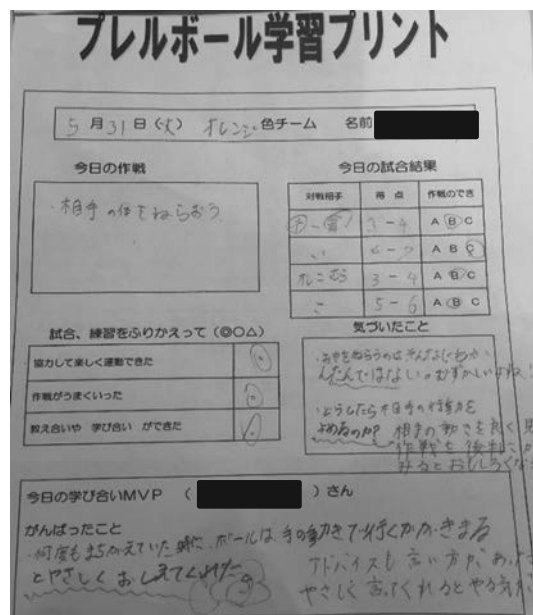 プレルボール学習プリント
5月31日(火) オレンジ色チーム 名前
今日の作戦
・相手の体をねらおう
今日の試合結果
対戦相手 得点 作戦のでき
3-4 A B C
A B C
3-4 A B C
5-6 A B C
試合、練習をふりかえって(◎○△)
協力して楽しく運動できた
作戦がうまくいった
教え合いや 学び合い ができた
気づいたこと
んたんではない。むずかしい
・どうしたら相手の行動を
よめるのか? 相手の動きを良く見
作戦を後半に
みるとおもしろくな
今日の学び合いMVP ( )さん
がんばったこと
・何度もまちがえていた時に、ボールは、手の動きで行くかがきまる
とやさしくおしえてくれた。
アドバイスも言い方が、
やさしく言ってくれるとやる気が